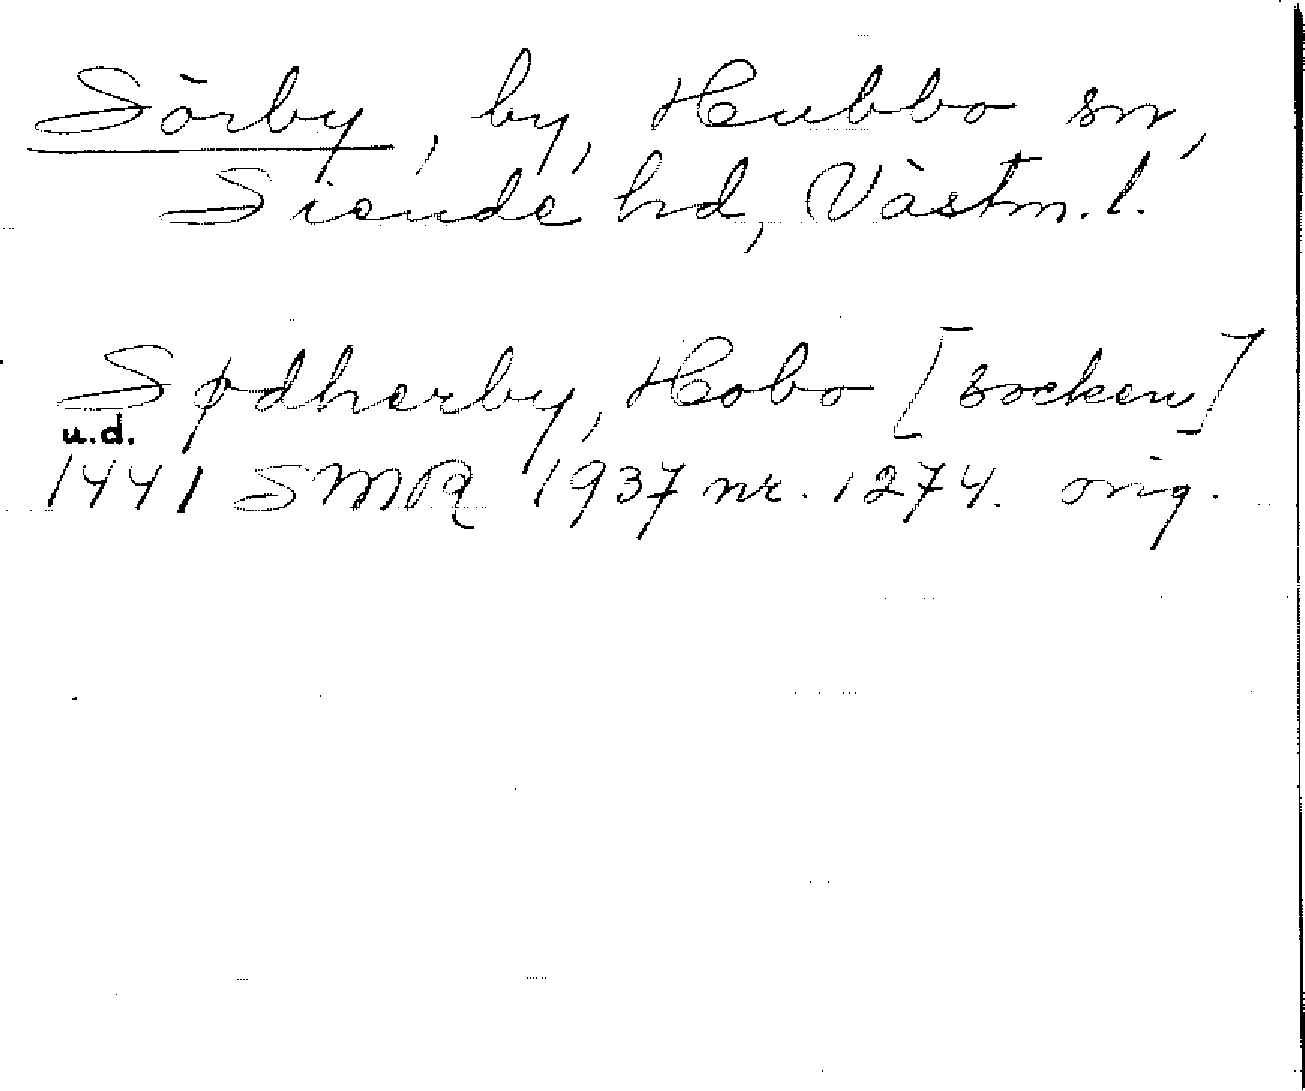 Sörby, by, Hubbo sn,
Siende hd, Västm. l.
Sødherby, Hobo [socken]
u.d.
1441 SMR 1937 nr. 1274. orig.